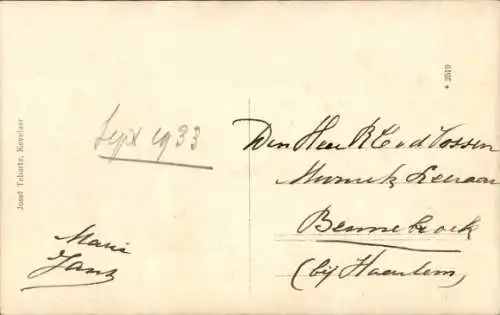 Sept 1933
Marie
Jans
Den Heer R C v d Vossen
Muziek Leeraar
Bennebroek
(bij Haarlem)
Josef Tebartz, Kevelaer
* 2519